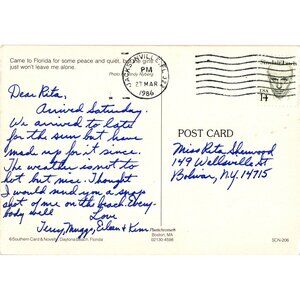 Came to Florida for some peace and quiet, but the
just won't leave me alone.
Photo by
JACKSONVILLE, FL 322
PM
27 MAR
1986
Sinclair Lewis
USA
14
Dear Rita,
Arrived Saturday.
We arrived to late
for the sun but have
made up for it since.
The weather is not to
hot but nice. Thought
I would send you a snap
shot of me on the beach. Every-
body well
Love
Terry, Muggs, Eileen & Kim
POST CARD
Miss Rita Sherwood
149 Wellsville St
Bolivar, N.Y. 14715
©Southern Card & Novelty, Daytona Beach, Florida
Plastichrome®
Boston, MA
02130-4598
SCN-206